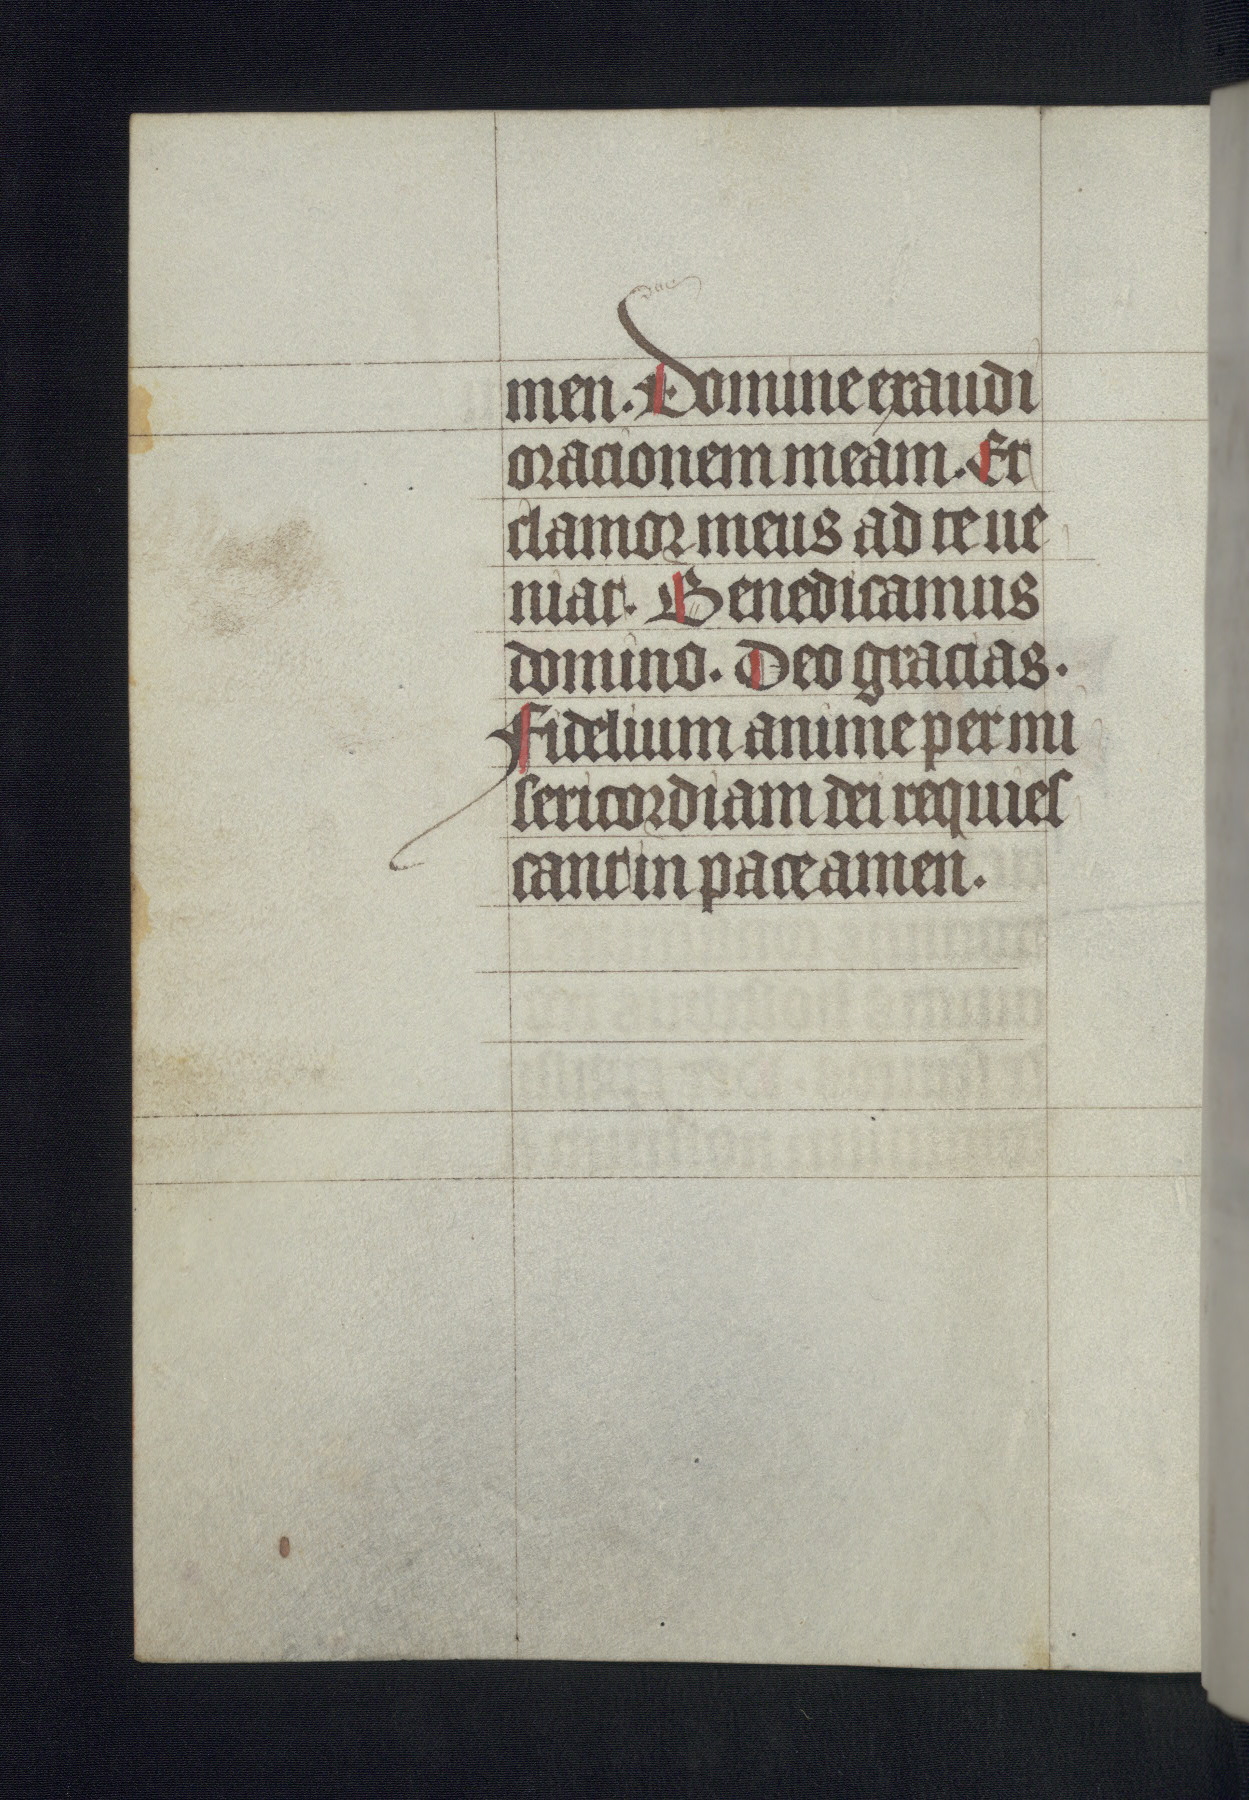 men. Domine exaudi
oracionem meam. Et
clamor meus ad te ue
niat. Benedicamus
domino. Deo gracias.
Fidelium anime per mi
sericordiam dei requies
cant in pace amen.